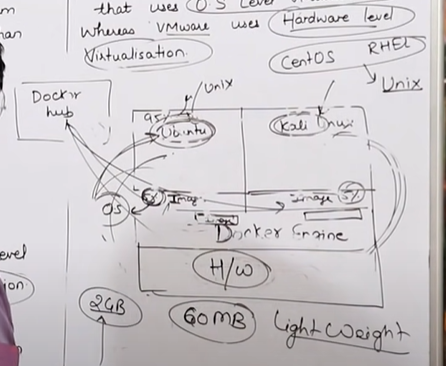 that uses OS Level
Whereas VMware uses Hardware level
Virtualisation.
CentOS RHEL
Unix
Docker
hub
Unix
Ubuntu
Kali Linux
OS
5%
Imag
Image
5%
Docker Engine
H/W
evel
ion
2GB
60MB
Light Weight